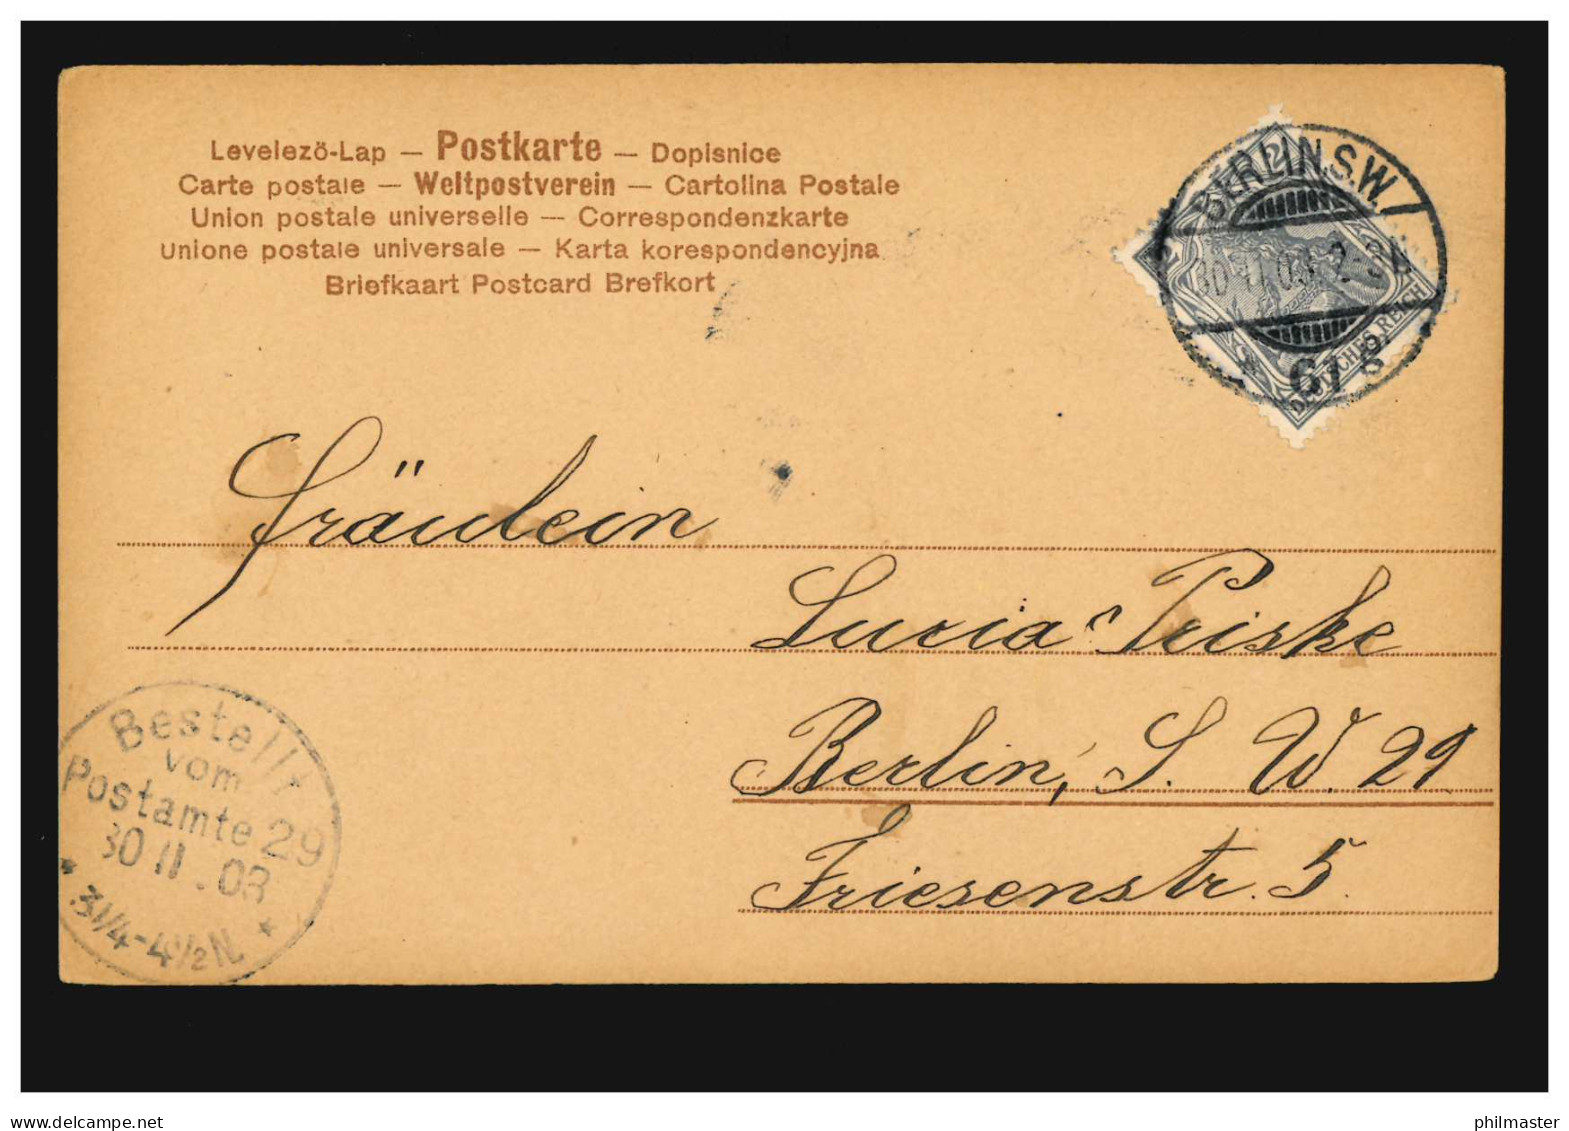 Levelezö-Lap — Postkarte — Dopisnice
Carte postale — Weltpostverein — Cartolina Postale
Union postale universelle — Correspondenzkarte
Unione postale universale — Karta korespondencyjna
Briefkaart Postcard Brefkort
BERLIN.S.W.
30.11.03. 2-3N
67 a.
2
DEUTSCHES REICH
Fräulein
Lucia Priske
Berlin, S. W. 29
Friesenstr. 5.
Bestellt
vom
Postamte 29
30 11 .03
* 3 1/4-4 1/2 N. *
delcampe.net
philmaster